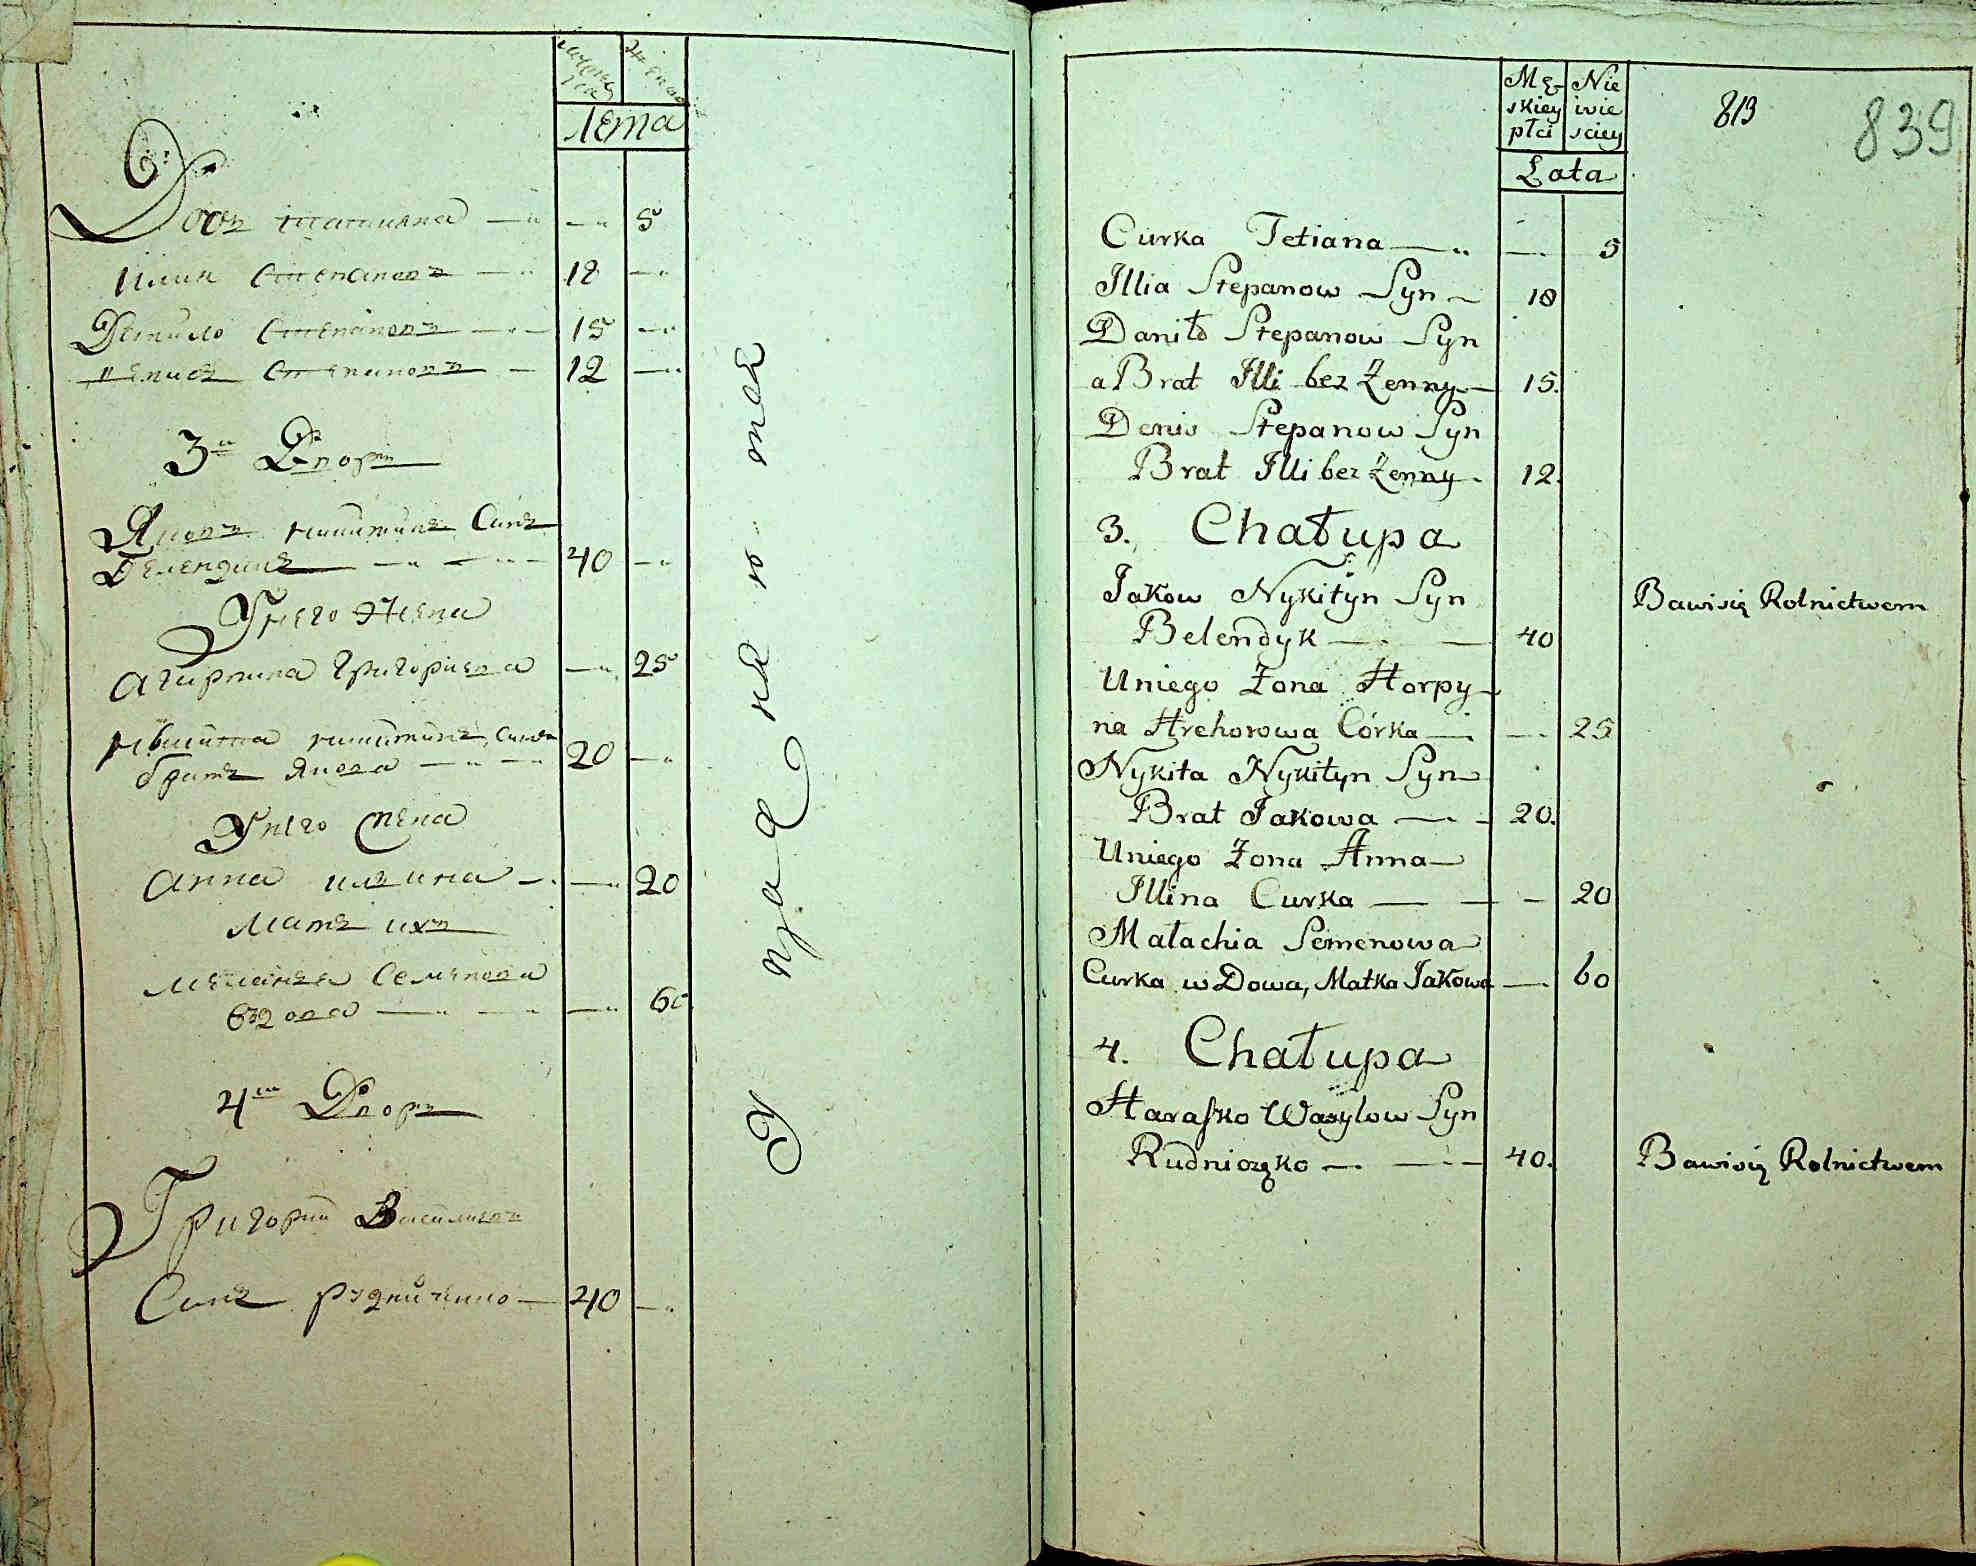 Лета
Дочь Татияна — — 5
Илия Степановъ — 18 —
Данило Степановъ — 15 —
Денисъ Степановъ — 12 —
3й Дворъ
Яковъ Никитинъ Синъ
Белендикъ — 40 —
У него Жена
Агирпина Григориева — 25
Никита Никитинъ Синъ
братъ Якова — 20 —
У него Жена
Анна илина — — 20
Мать ихъ
Семенова
вдова — — 60
4й Дворъ
Григорий Василиевъ
Синъ Рудниченко — 40 —
Mę Nie
skiey wie
płci sciey
Lata
813
839
Curka Tetiana — — 5
Illia Stepanow Syn — 18
Daniło Stepanow Syn
a Brat Illi bez Żenny — 15.
Denis Stepanow Syn
Brat Illi bez Żenny. 12.
3. Chałupa
Jakow Nykityn Syn
Bawisię Rolnictwem
Belendyk — — 40
Uniego Żona Horpy
na Hrehorowa Córka — — 25
Nykita Nykityn Syn
Brat Jakowa — 20.
Uniego Żona Anna
Illina Curka — — 20
Małachia Semenowa
Curka wDowa, Matka Jakowa — 60
4. Chałupa
Harasko Wasylow Syn
Rudniczęko — — 40.
Bawisię Rolnictwem